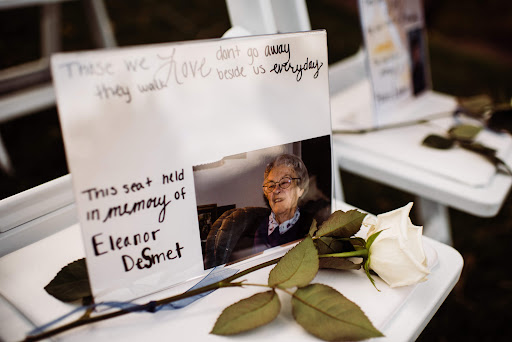 Those we Love don't go away
they walk beside us everyday
This seat held
in memory of
Eleanor
DeSmet